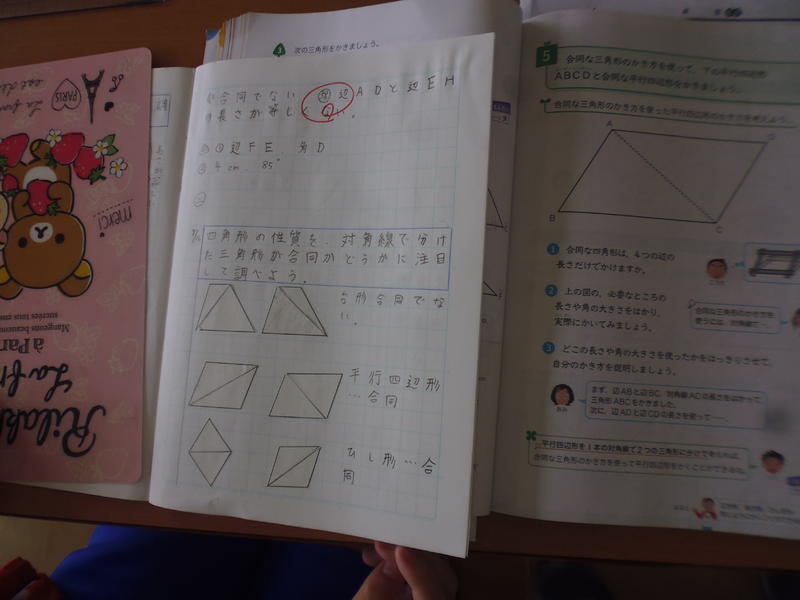 次の三角形をかきましょう。
い合同でない
辺ADと辺EH
の長さが等しく
い。
辺FE、角D
4cm、85°
四角形の性質を、対角線で分け
た三角形が合同かどうかに注目
して調べよう。
台形合同でな
い。
平行四辺形
…合同
ひし形…合
同
5
合同な三角形のかき方を使って、下の平行四辺形
ABCDと合同な平行四辺形をかきましょう。
合同な三角形のかき方を使った平行四辺形のかき方を考えよう。
A
D
B
C
1 合同な四角形は、4つの辺の
長さだけでかけますか。
2 上の図の、必要なところの
長さや角の大きさをはかり、
実際にかいてみましょう。
合同な三角形のかき方を
使うには、対角線で…。
3 どこの長さや角の大きさを使ったかをはっきりさせて、
自分のかき方を説明しましょう。
まず、辺ABと辺BC、対角線ACの長さをはかって
三角形ABCをかきました。
次に、辺ADと辺CDの長さを使って……。
あみ
平行四辺形を1本の対角線で2つの三角形に分けて考えれば、
合同な三角形のかき方を使って平行四辺形をかくことができるね。
PARIS
merci
Mangeons beaucoup
sucrées tous ens
à Par
La fr
Rilak